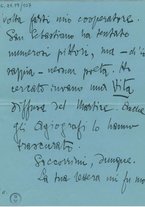 volta farsi mio cooperatore.
San Sebastiano ha tentato
numerosi pittori, ma - ch'io
sappia - nessun poeta. Ho
cercato invano una Vita
diffusa del Martire. Anche
gli agiografi lo hanno
trascurato.
Soccorrimi, dunque.
La tua lettera mi fu